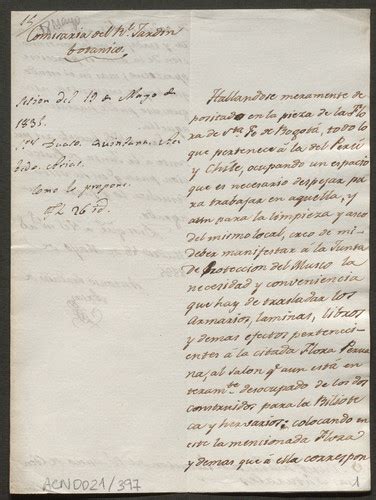 Comisaria del Rl. Jardin
botanico.
Sesion del 19 de Mayo de
1835.
Como lo propone.
Fd. 26 id.
Hallandose meramente de
positado en la pieza de la Flo
ra de Sta. Fe de Bogotá, todo lo
que pertenece à la del Perú
y Chile, ocupando un espacio
que es necesario despejar pa
ra trabajar en aquella, y
aun para la limpieza y aseo
del mismo local, creo de mi
deber manifestar á la Junta
de Proteccion del Museo la
necesidad y conveniencia
que hay de trasladar los
Armarios, laminas, libros
y demas efectos pertenecien
entes à la citada Flora Perua
na, al salon qe. aun está en
teramte. desocupado de los dos
construidos para la Bibliote
ca y hervarios; colocando en
este la mencionada Flora
y demas que à ella correspon
ACN0021/397
1